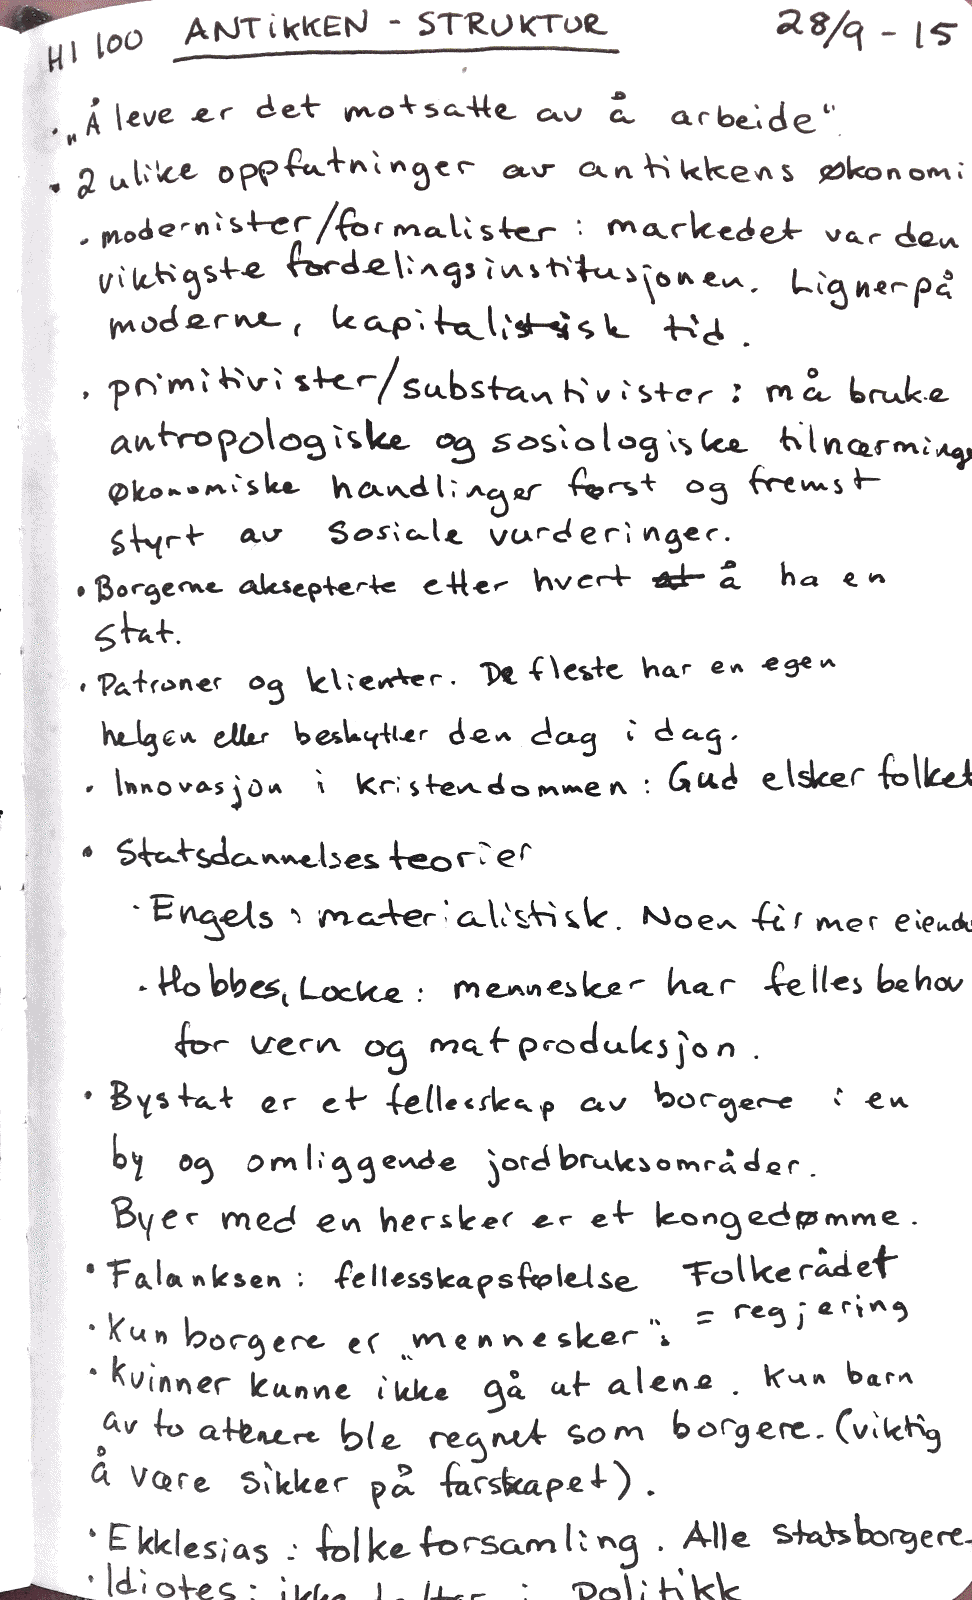 HI 100 ANTIKKEN - STRUKTUR 28/9 - 15
· „Å leve er det motsatte av å arbeide“.
· 2 ulike oppfatninger av antikkens økonomi
· modernister/formalister : markedet var den
viktigste fordelingsinstitusjonen. Ligner på
moderne, kapitalistisk tid.
· primitivister/substantivister : må bruke
antropologiske og sosiologiske tilnærmings
økonomiske handlinger først og fremst
styrt av sosiale vurderinger.
· Borgerne aksepterte etter hvert at å ha en
stat.
· Patroner og klienter. De fleste har en egen
helgen eller beskytter den dag i dag.
· Innovasjon i kristendommen : Gud elsker folket
· Statsdannelsesteorier
· Engels : materialistisk. Noen får mer eiend
· Hobbes, Locke : mennesker har felles behov
for vern og matproduksjon.
· Bystat er et fellesskap av borgere i en
by og omliggende jordbruksområder.
Byer med en hersker er et kongedømme.
· Falanksen : fellesskapsfølelse Folkerådet
= regjering
· Kun borgere er „mennesker“.
· Kvinner kunne ikke gå ut alene. Kun barn
av to atenere ble regnet som borgere. (viktig
å være sikker på farskapet).
· Ekklesias : folkeforsamling. Alle statsborgere
· Idiotes : ikke deltar i politikk